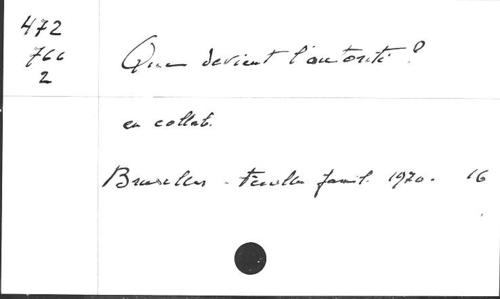 472
766
2
Que devient l'autorité ?
en collab.
Bruxelles - Feuilles famil. 1970. 16